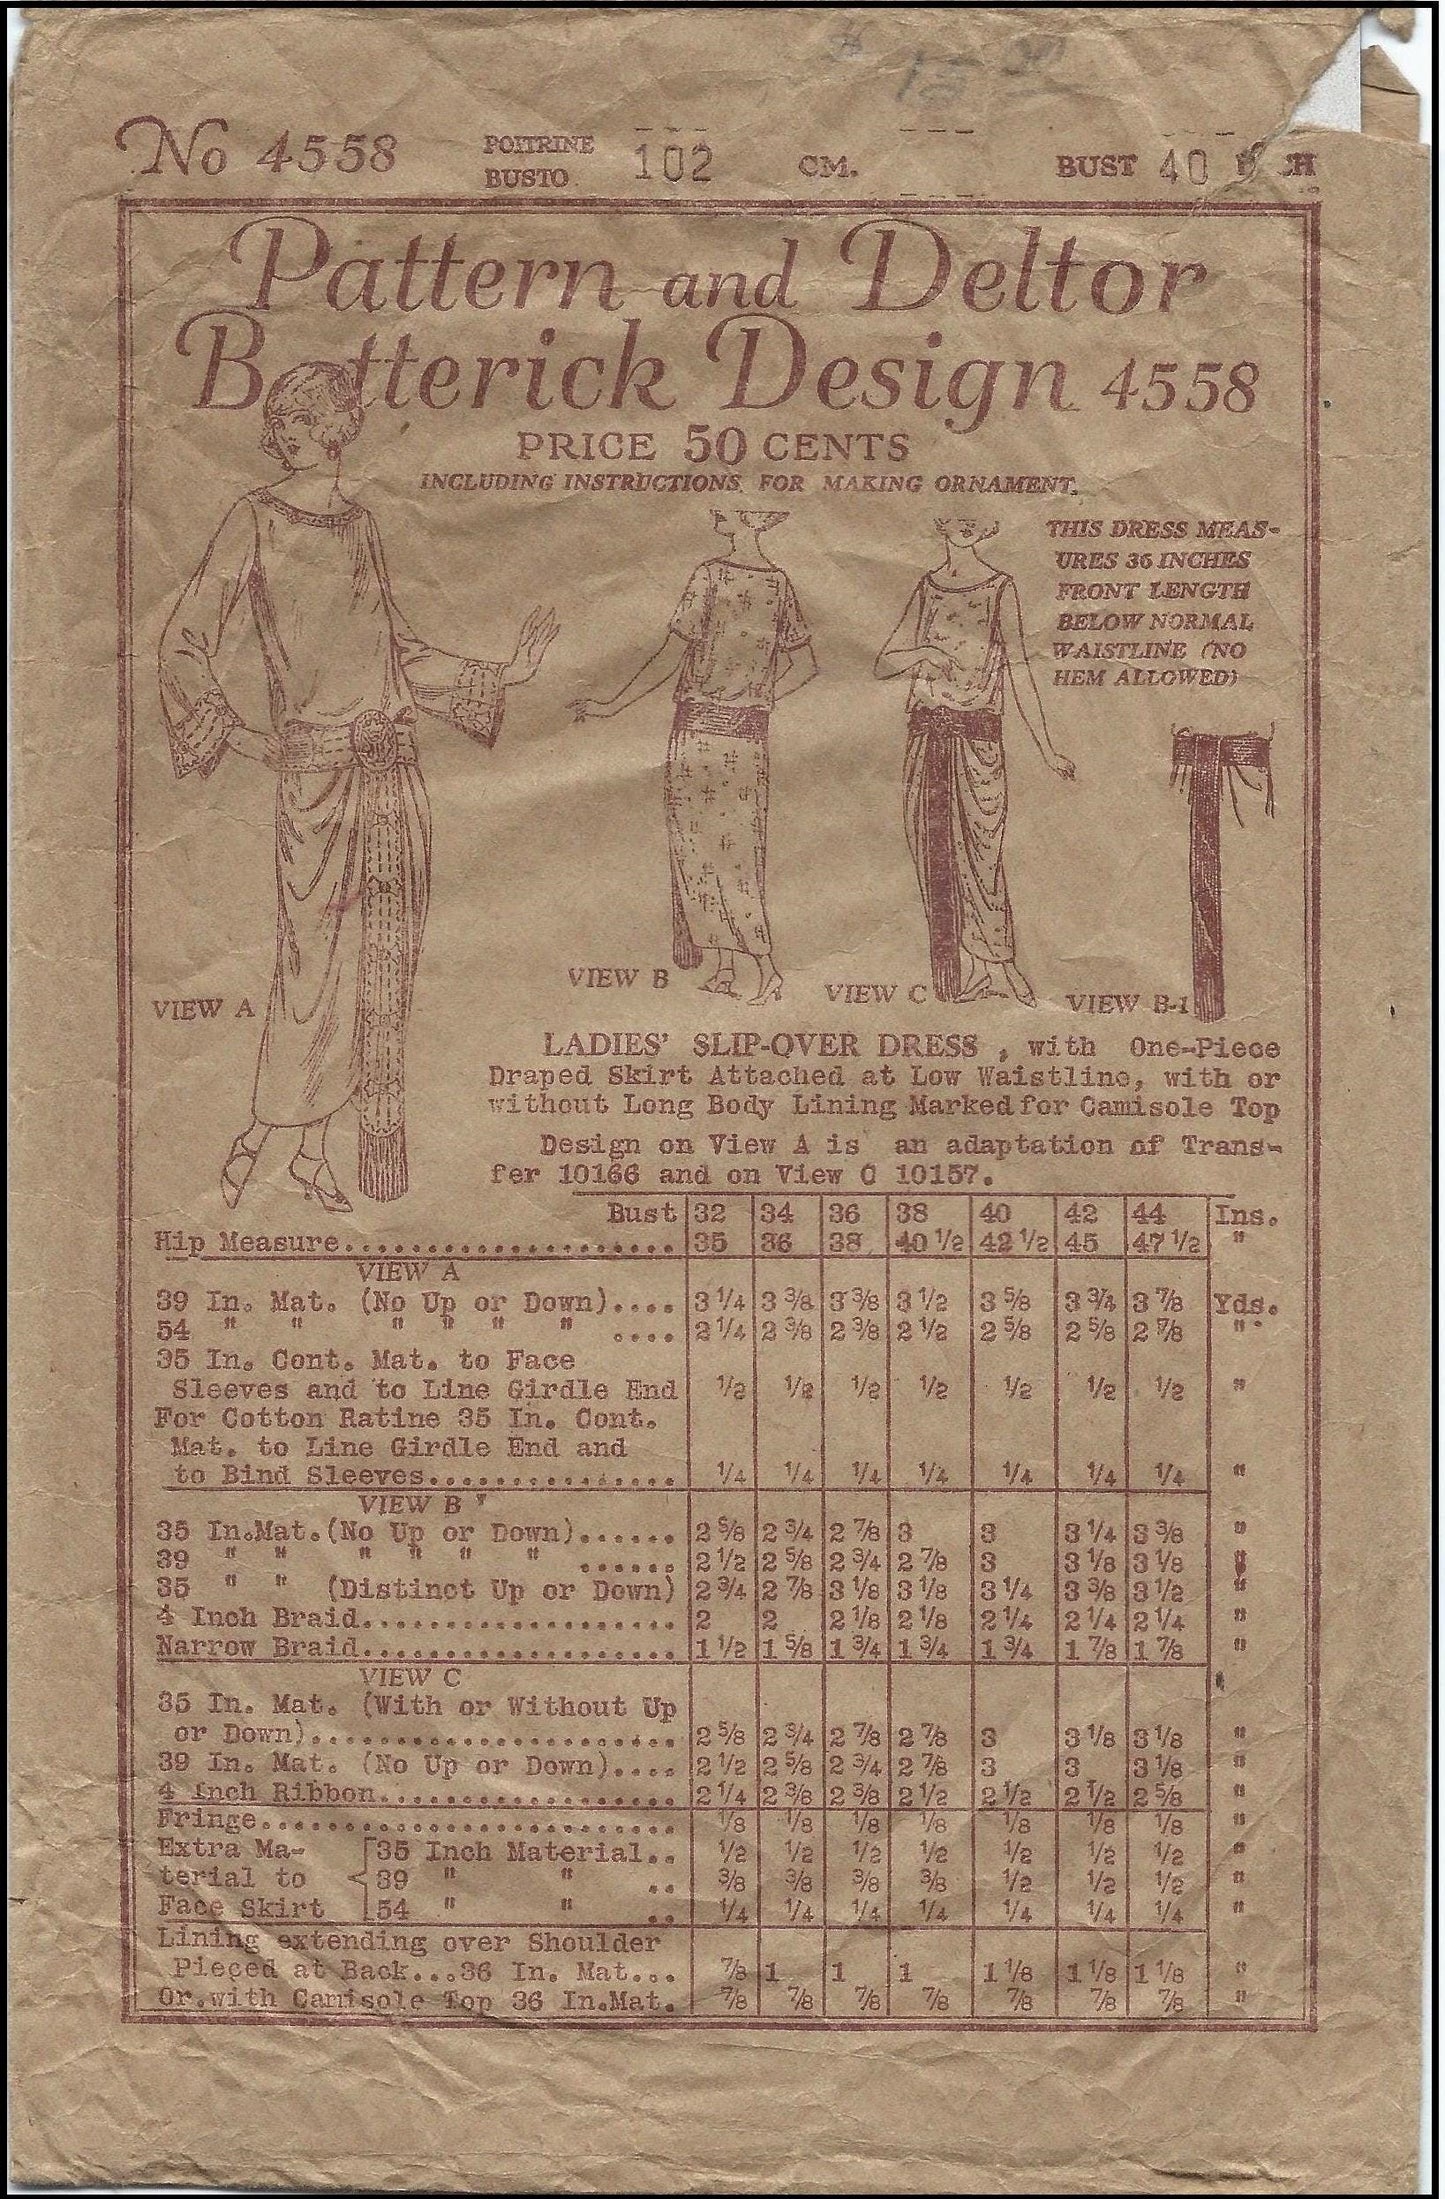 15
No 4558 POITRINE BUSTO 102 CM. BUST 40
Pattern and Deltor
Butterick Design 4558
PRICE 50 CENTS
INCLUDING INSTRUCTIONS FOR MAKING ORNAMENT.
THIS DRESS MEAS-
URES 36 INCHES
FRONT LENGTH
BELOW NORMAL
WAISTLINE (NO
HEM ALLOWED)
VIEW A
VIEW B
VIEW C
VIEW B-1
LADIES' SLIP-OVER DRESS , with One-Piece
Draped Skirt Attached at Low Waistline, with or
without Long Body Lining Marked for Camisole Top
Design on View A is an adaptation of Trans-
fer 10166 and on View C 10157.
Bust 32 34 36 38 40 42 44 Ins.
Hip Measure.................... 35 36 38 40 1/2 42 1/2 45 47 1/2 "
VIEW A
39 In. Mat. (No Up or Down).... 3 1/4 3 3/8 3 3/8 3 1/2 3 5/8 3 3/4 3 7/8 Yds.
54 " " " " " " .... 2 1/4 2 3/8 2 3/8 2 1/2 2 5/8 2 5/8 2 7/8 "
35 In. Cont. Mat. to Face
Sleeves and to Line Girdle End 1/2 1/2 1/2 1/2 1/2 1/2 1/2 "
For Cotton Ratine 35 In. Cont.
Mat. to Line Girdle End and
to Bind Sleeves............... 1/4 1/4 1/4 1/4 1/4 1/4 1/4 "
VIEW B
35 In.Mat.(No Up or Down)...... 2 5/8 2 3/4 2 7/8 3 3 3 1/4 3 3/8 "
39 " " " " " " ...... 2 1/2 2 5/8 2 3/4 2 7/8 3 3 1/8 3 1/8 "
35 " " (Distinct Up or Down) 2 3/4 2 7/8 3 1/8 3 1/8 3 1/4 3 3/8 3 1/2 "
4 Inch Braid................... 2 2 2 1/8 2 1/8 2 1/4 2 1/4 2 1/4 "
Narrow Braid................... 1 1/2 1 5/8 1 3/4 1 3/4 1 3/4 1 7/8 1 7/8 "
VIEW C
35 In. Mat. (With or Without Up
or Down)...................... 2 5/8 2 3/4 2 7/8 2 7/8 3 3 1/8 3 1/8 "
39 In. Mat. (No Up or Down).... 2 1/2 2 5/8 2 3/4 2 7/8 3 3 3 1/8 "
4 Inch Ribbon.................. 2 1/4 2 3/8 2 3/8 2 1/2 2 1/2 2 1/2 2 5/8 "
Fringe......................... 1/8 1/8 1/8 1/8 1/8 1/8 1/8 "
Extra Ma- 35 Inch Material.. 1/2 1/2 1/2 1/2 1/2 1/2 1/2 "
terial to 39 " " .. 3/8 3/8 3/8 3/8 1/2 1/2 1/2 "
Face Skirt 54 " " .. 1/4 1/4 1/4 1/4 1/4 1/4 1/4 "
Lining extending over Shoulder
Pieced at Back...36 In. Mat... 7/8 1 1 1 1 1/8 1 1/8 1 1/8 "
Or.with Camisole Top 36 In.Mat. 7/8 7/8 7/8 7/8 7/8 7/8 7/8 "